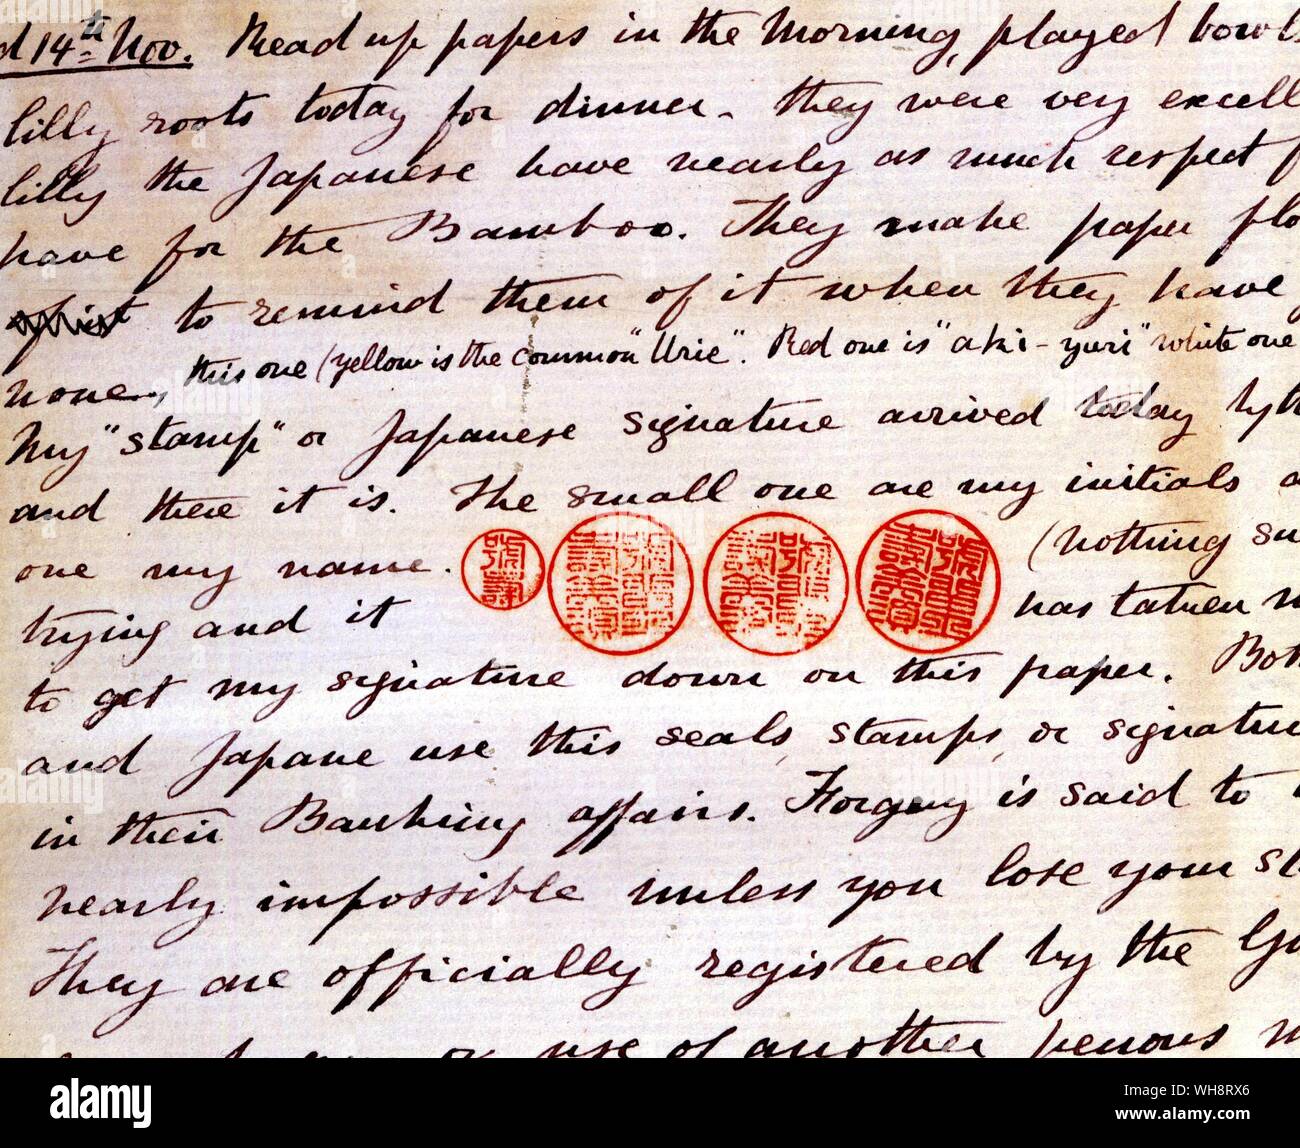 d 14th Nov. Read up papers in the Morning, played bowls
lilly roots today for dinner. They were very excell
lilly the Japanese have nearly as much respect f
have for the Bamboo. They make paper flo
to remind them of it when they have
none, this one (yellow is the common "Urie". Red one is "aki-yuri" white one
My "stamp" or Japanese signature arrived today by th
and there it is. The small one are my initials a
one my name. (nothing su
trying and it has taken m
to get my signature down on this paper. Bot
and Japane use this seals, stamps, or signatu
in their Banking affairs. Forgery is said to
nearly impossible unless you lose your st
They are officially registered by the Go
use of another persons
alamy
Image ID: WH8RX6
www.alamy.com